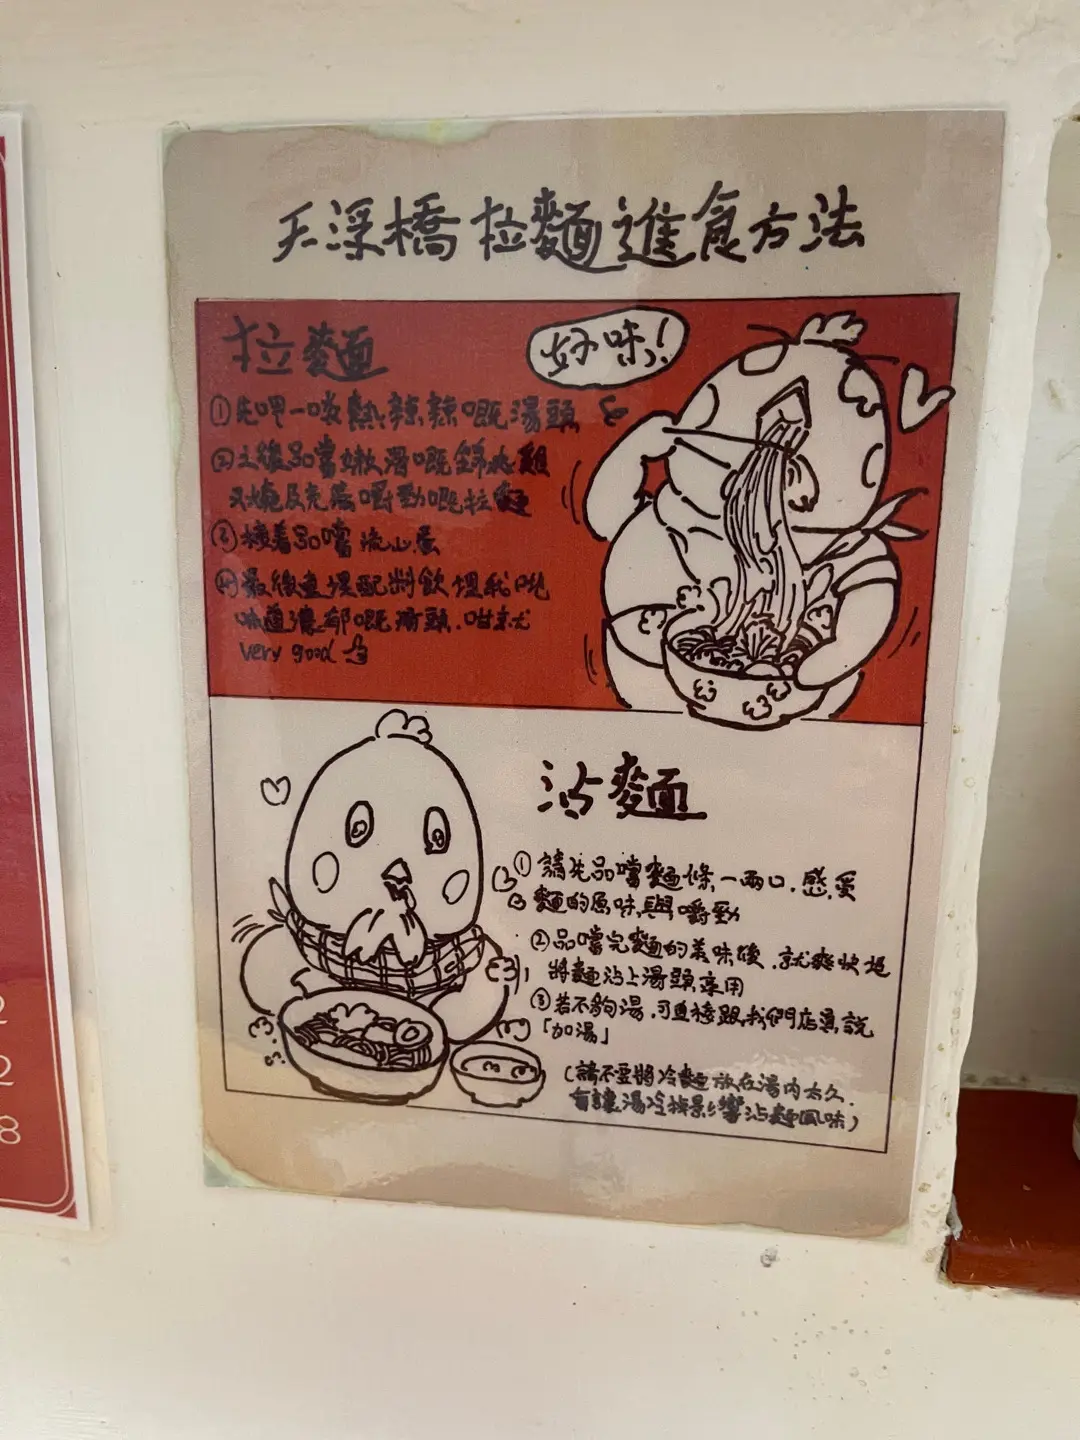 天深橋拉麵進食方法
拉麵
好味!
①先呷一啖熱辣辣嘅湯頭
②之後品嚐嫩滑嘅雞
叉燒及充滿嚼勁嘅拉麵
③接着品嚐流心蛋
④最後直埋配料飲埋我哋
味道濃郁嘅湯頭.咁就
very good
沾麵
①請先品嚐麵條,一兩口.感受
麵的原味與嚼勁
②品嚐完麵的美味後.就爽快地
將麵沾上湯頭享用
③若不夠湯.可直接跟我們店員說
「加湯」
(請不要將冷麵放在湯內太久.
會讓湯冷掉影響沾麵風味)
2
2
8